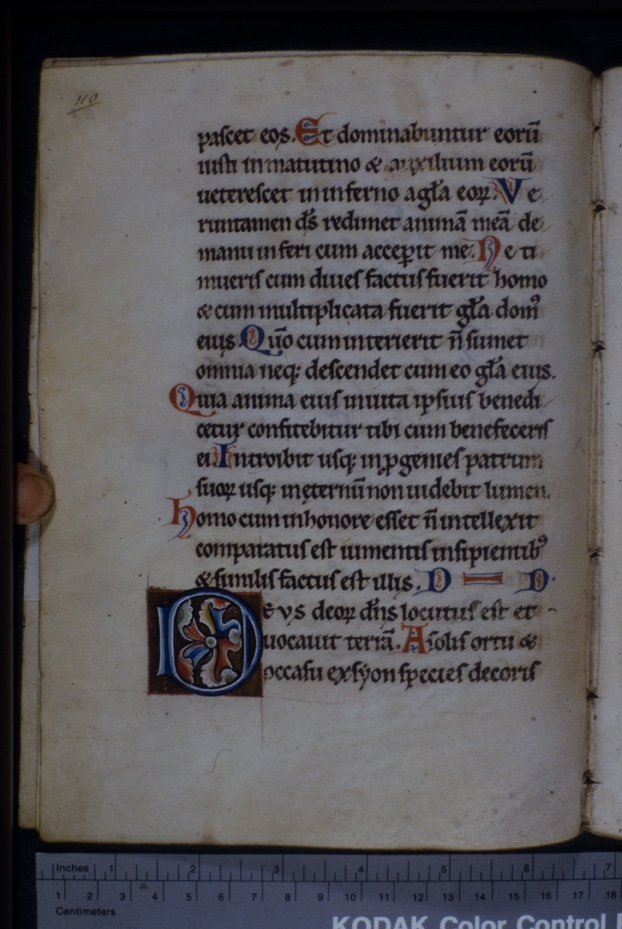 110
pascet eos. Et dominabuntur eorū
iusti in matutino & auxilium eorū
ueterescet in inferno a gła eoꝝ. Ve
runtamen ds̄ redimet animā meā de
manu inferi cum acceperit me. Ne ti
mueris cum diues factus fuerit homo
& cum multiplicata fuerit gła domꝰ
eius. Qūo cum interierit n̄ sumet
omnia neq; descendet cum eo gła eius.
Quia anima eius in uita ipsius benedi
cetur confitebitur tibi cum benefeceris
ei. Introibit usq; in ꝓgenies patrum
suoꝝ usq; in eternū non uidebit lumen.
Homo cum in honore esset n̄ intellexit
comparatus est iumentis insipientibꝰ
& similis factus est illis. D D
Deus deoꝝ dn̄s locutus est et
uocauit terrā. A solis ortu &
occasu ex syon species decoris
Inches 1 2 3 4 5 6 7
1 2 3 4 5 6 7 8 9 10 11 12 13 14 15 16 17 18
Centimeters
KODAK Color Control